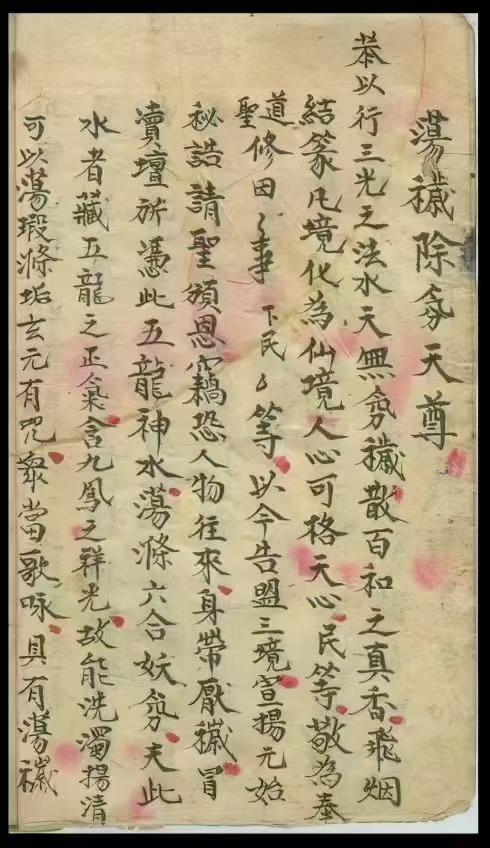 蕩穢除氛天尊
恭以行三光之法水天無氛穢散百和之真香飛烟
結篆凡境化為仙境人心可格天心民等敬為奉
道
聖修因〻事下民〻等以今告盟三境宣揚元始
秘誥請聖頒恩竊恐人物往來身帶厭穢冒
瀆壇所憑此五龍神水蕩滌六合妖氛夫此
水者藏五龍之正氣含九鳳之祥光故能洗濁揚清
可以蕩瑕滌垢玄元有咒衆當歌咏具有蕩穢